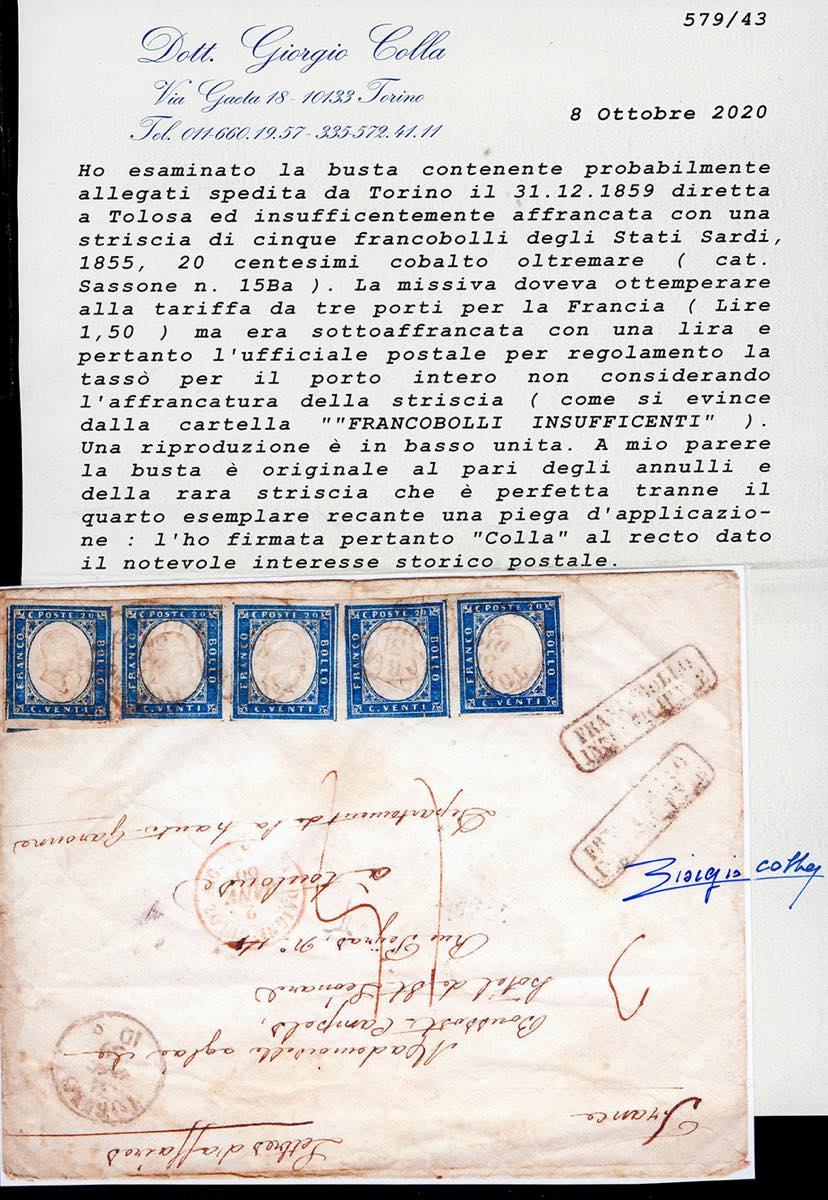 579/43
Dott. Giorgio Colla
Via Gaeta 18 - 10133 Torino
Tel. 011-660.19.57 - 335-572.41.11
8 Ottobre 2020
Ho esaminato la busta contenente probabilmente
allegati spedita da Torino il 31.12.1859 diretta
a Tolosa ed insufficentemente affrancata con una
striscia di cinque francobolli degli Stati Sardi,
1855, 20 centesimi cobalto oltremare ( cat.
Sassone n. 15Ba ). La missiva doveva ottemperare
alla tariffa da tre porti per la Francia ( Lire
1,50 ) ma era sottoaffrancata con una lira e
pertanto l'ufficiale postale per regolamento la
tassò per il porto intero non considerando
l'affrancatura della striscia ( come si evince
dalla cartella ""FRANCOBOLLI INSUFFICENTI" ).
Una riproduzione è in basso unita. A mio parere
la busta è originale al pari degli annulli e
della rara striscia che è perfetta tranne il
quarto esemplare recante una piega d'applicazio-
ne : l'ho firmata pertanto "Colla" al recto dato
il notevole interesse storico postale.
C. POSTE 20 FRANCO BOLLO C. VENTI
C. POSTE 20 FRANCO BOLLO C. VENTI
C. POSTE 20 FRANCO BOLLO C. VENTI
C. POSTE 20 FRANCO BOLLO C. VENTI
C. POSTE 20 FRANCO BOLLO C. VENTI
Giorgio Colla
Lettres d'affaires
France
Mademoiselle aglaé de
hôtel de St Léonard
Rue N° 14
à toulouse
Département de la haute Garonne
3
TORINO